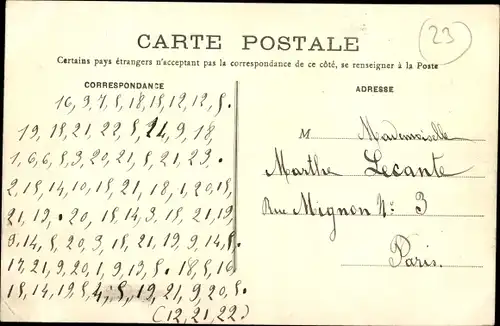 CARTE POSTALE
23
Certains pays étrangers n'acceptant pas la correspondance de ce côté, se renseigner à la Poste
CORRESPONDANCE
16,9,7,5,18,15,12,12,5.
19,15,21,22,5,14,9,18
1,6,6,5,3,20,21,5,21,23.
2,15,14,10,15,21,18,1,20,15,
21,19. 20,15,14,3,15,21,19
9,14,5,20,3,15,21,19,9,14,5,
17,21,9,20,1,9,13,5. 18,5,16
15,14,19,5,4,5,19,21,9,20,5.
(12,21,22)
ADRESSE
M Mademoiselle
Marthe Lecante
Rue Mignon N° 3
Paris.